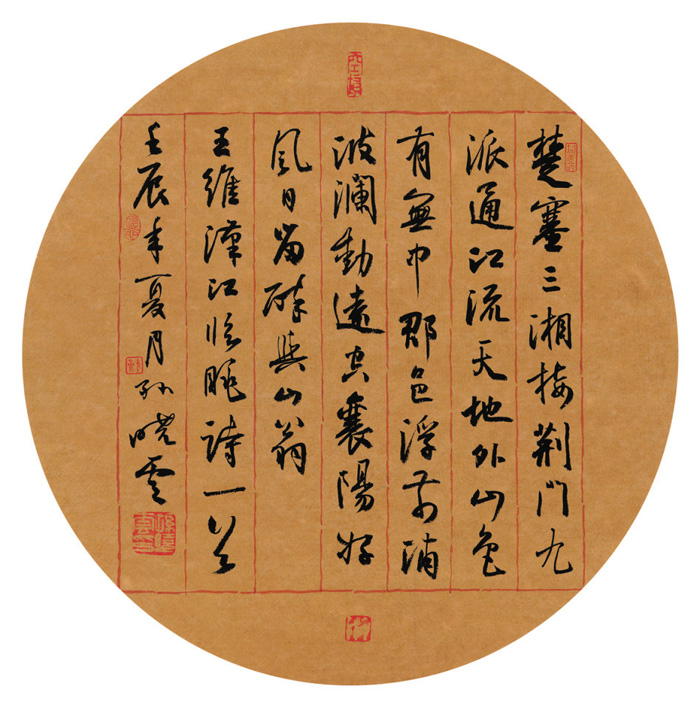 楚塞三湘接荆門九
派通江流天地外山色
有無中郡邑浮前浦
波瀾動遠空襄陽好
風日留醉與山翁
王維漢江临眺詩一首
壬辰年夏月孫曉雲